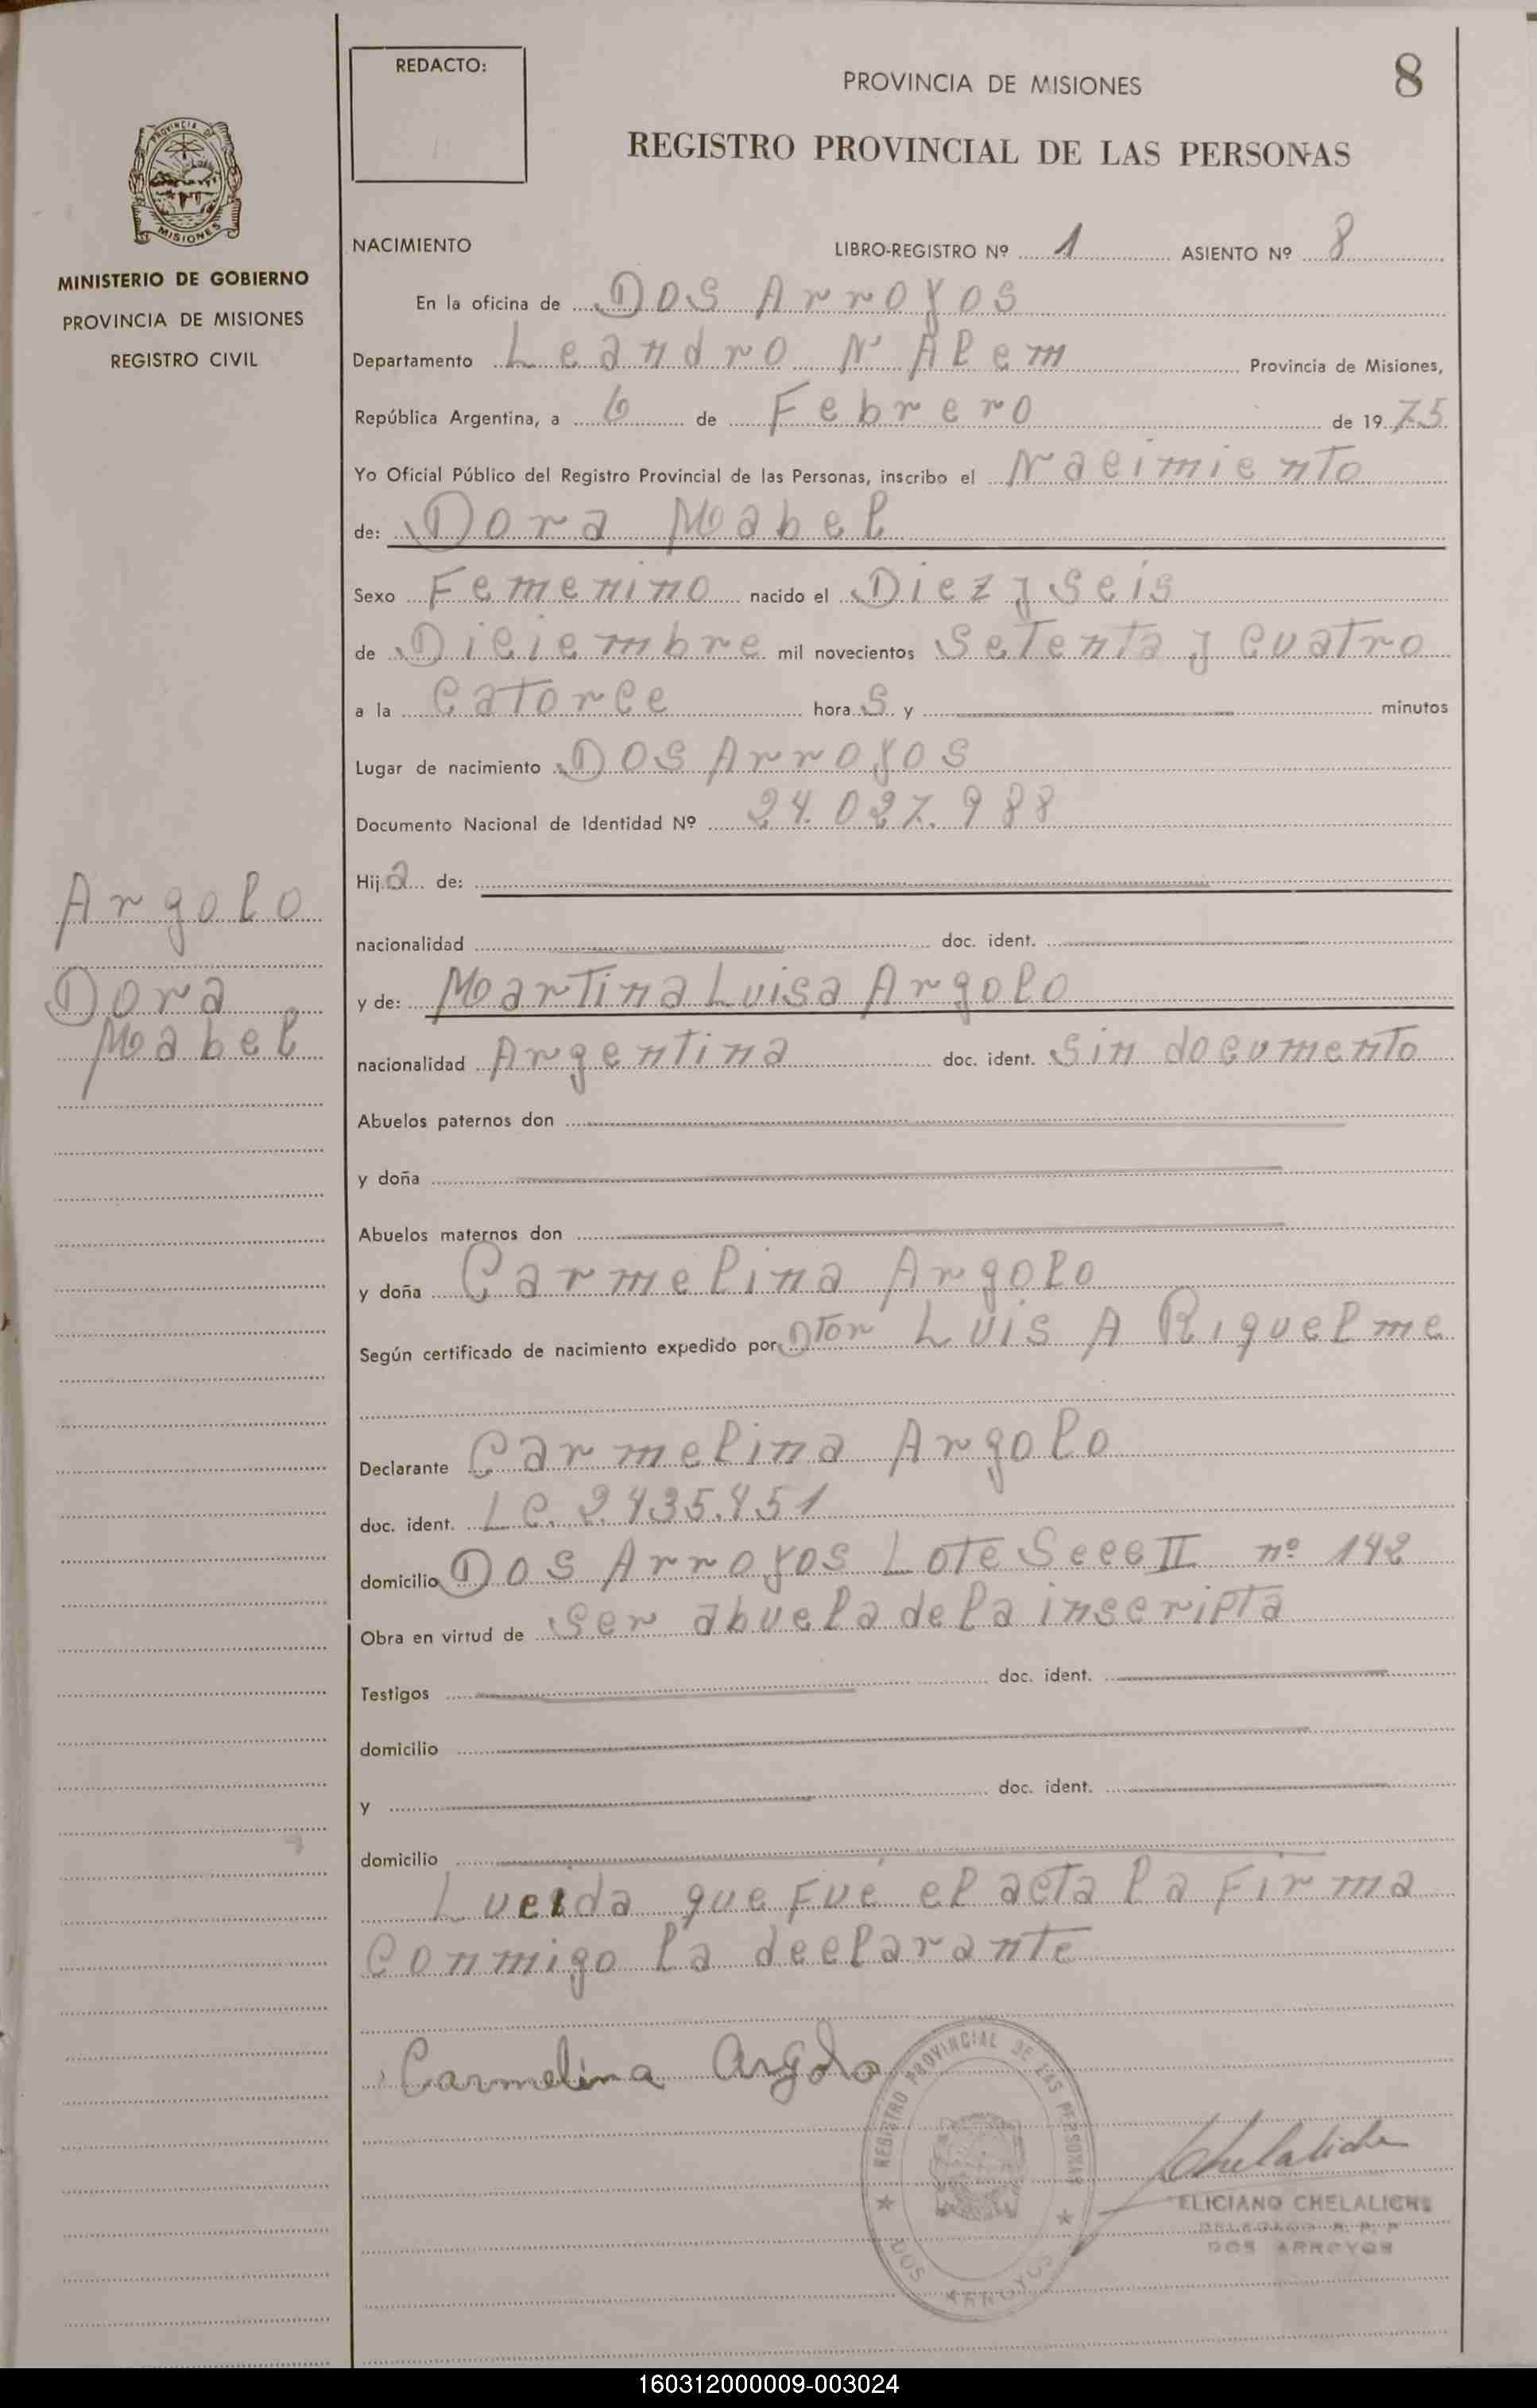 REDACTO:
PROVINCIA DE MISIONES
8
REGISTRO PROVINCIAL DE LAS PERSONAS
PROVINCIA DE
MISIONES
MINISTERIO DE GOBIERNO
PROVINCIA DE MISIONES
REGISTRO CIVIL
NACIMIENTO LIBRO-REGISTRO Nº 1 ASIENTO Nº 8
En la oficina de Dos Arroyos
Departamento Leandro N Alem Provincia de Misiones,
República Argentina, a 6 de Febrero de 1975
Yo Oficial Público del Registro Provincial de las Personas, inscribo el Nacimiento
de: Dora Mabel
Sexo Femenino nacido el Diez y Seis
de Diciembre mil novecientos Setenta y Cuatro
a la Catorce hora s y minutos
Lugar de nacimiento Dos Arroyos
Documento Nacional de Identidad Nº 24.027.988
Hija de:
nacionalidad doc. ident.
Argolo
Dora
Mabel
y de: Martina Luisa Argolo
nacionalidad Argentina doc. ident. Sin documento
Abuelos paternos don
y doña
Abuelos maternos don
y doña Carmelina Argolo
Según certificado de nacimiento expedido por Dtor Luis A Riquelme
Declarante Carmelina Argolo
doc. ident. LC. 2.435.451
domicilio Dos Arroyos Lote Secc II nº 142
Obra en virtud de Ser abuela de la inscripta
Testigos doc. ident.
domicilio
y doc. ident.
domicilio
Lueida que Fué el acta la Firma
Conmigo la declarante
Carmelina Argolo
REGISTRO PROVINCIAL DE LAS PERSONAS
DOS ARROYOS
Chelaliche
ELICIANO CHELALICHE
DELEGADO R. P. P
DOS ARROYOS
160312000009-003024